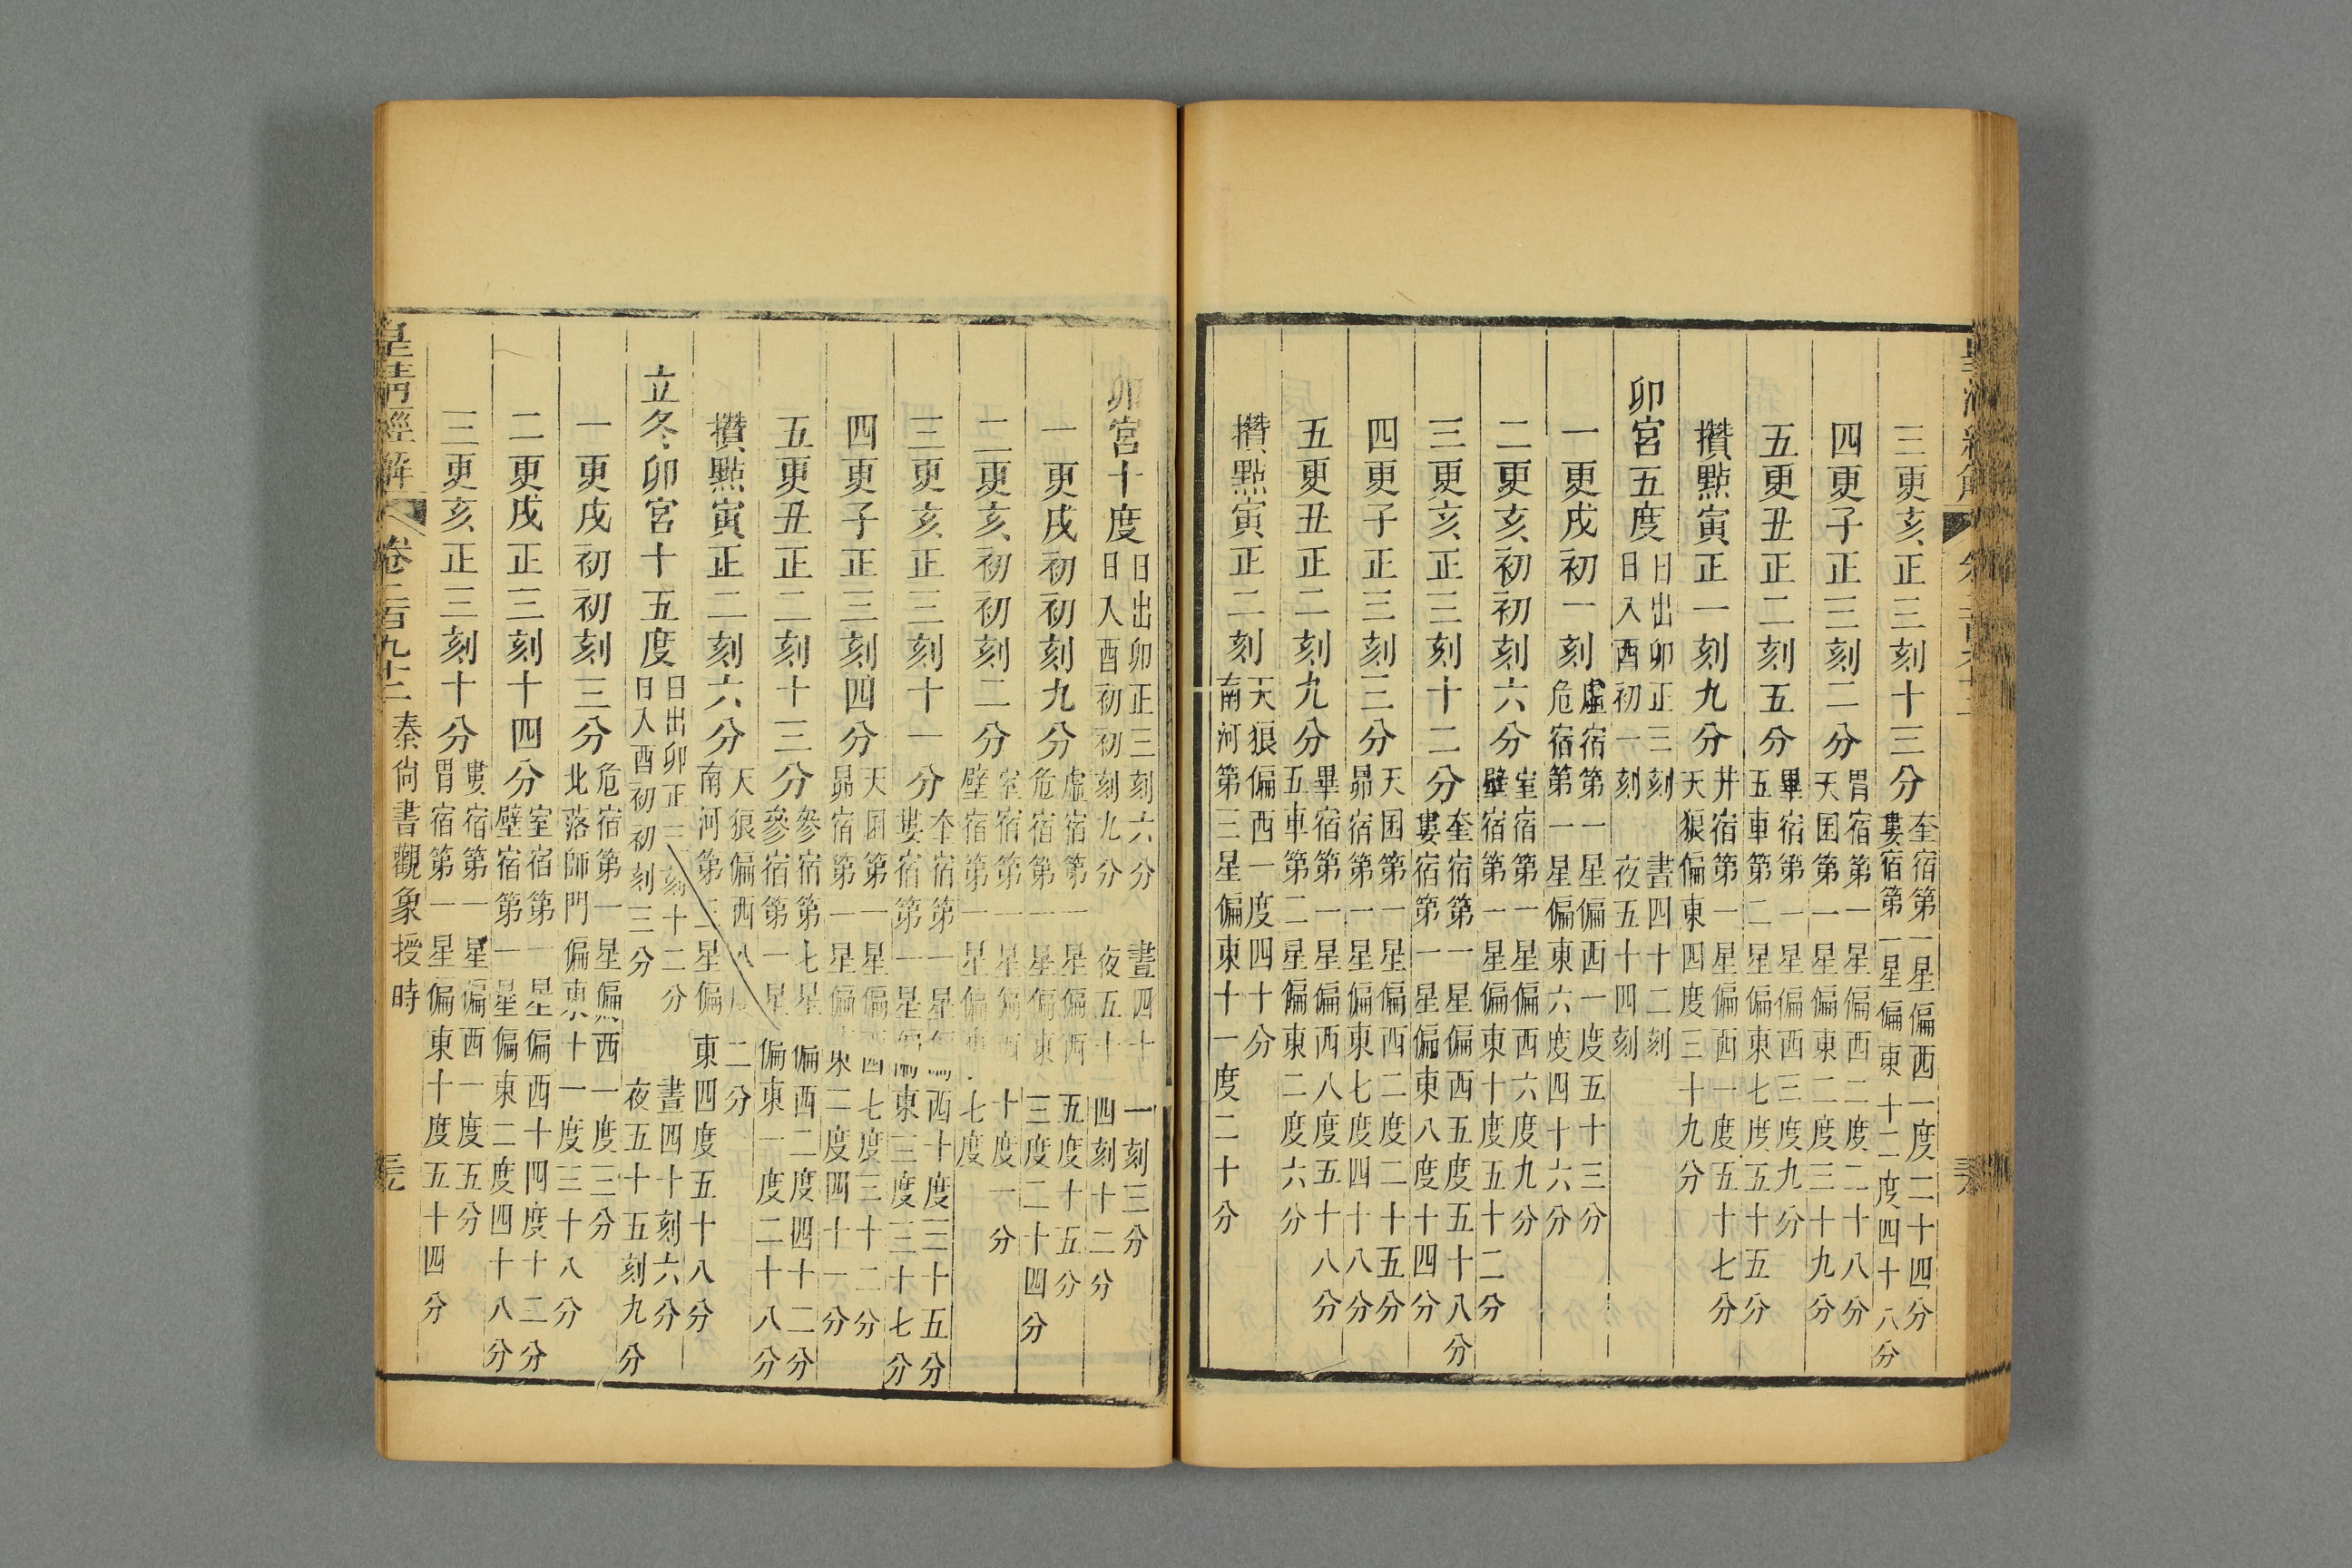 三更亥正三刻十三分奎宿第一星偏西一度二十四分
婁宿第一星偏東十二度四十八分
四更子正三刻二分胃宿第一星偏西二度二十八分
天囷第一星偏東二度三十九分
五更丑正二刻五分畢宿第一星偏西三度九分
五車第二星偏東七度五十五分
攢點寅正一刻九分井宿第一星偏西一度五十七分
天狼偏東四度三十九分
卯宮五度日出卯正三刻 晝四十二刻
日入酉初一刻 夜五十四刻
一更戌初一刻虛宿第一星偏西一度五十三分
危宿第一星偏東六度四十六分
二更亥初初刻六分室宿第一星偏西六度九分
壁宿第一星偏東十度五十二分
三更亥正三刻十二分奎宿第一星偏西五度五十八分
婁宿第一星偏東八度十四分
四更子正三刻三分天囷第一星偏西二度二十五分
昴宿第一星偏東七度四十八分
五更丑正二刻九分畢宿第一星偏西八度五十八分
五車第二星偏東二度六分
攢點寅正二刻天狼偏西一度四十分
南河第三星偏東十一度二十分
卯宮十度日出卯正三刻六分 晝四十一刻三分
日入酉初初刻九分 夜五十四刻十二分
一更戌初初刻九分虛宿第一星偏西五度十五分
危宿第一星偏東三度二十四分
二更亥初初刻二分室宿第一星偏西十度一分
壁宿第一星偏 七度
三更亥正三刻十一分奎宿第一星偏西十度三十五分
婁宿第一星偏東三度三十七分
四更子正三刻四分天囷第一星偏西七度三十二分
昴宿第一星偏東二度四十一分
五更丑正二刻十三分參宿第七星偏西二度四十二分
參宿第一星偏東一度二十八分
攢點寅正二刻六分天狼偏西八度二分
南河第三星偏東四度五十八分
立冬卯宮十五度日出卯正三刻十二分 晝四十刻六分
日入酉初初刻三分 夜五十五刻九分
一更戌初初刻三分危宿第一星偏西一度三分
北落師門偏東十一度三十八分
二更戌正三刻十四分室宿第一星偏西十四度十三分
壁宿第一星偏東二度四十八分
三更亥正三刻十分婁宿第一星偏西一度五分
胃宿第一星偏東十度五十四分
皇清經解 卷二百九十二 秦尙書觀象授時